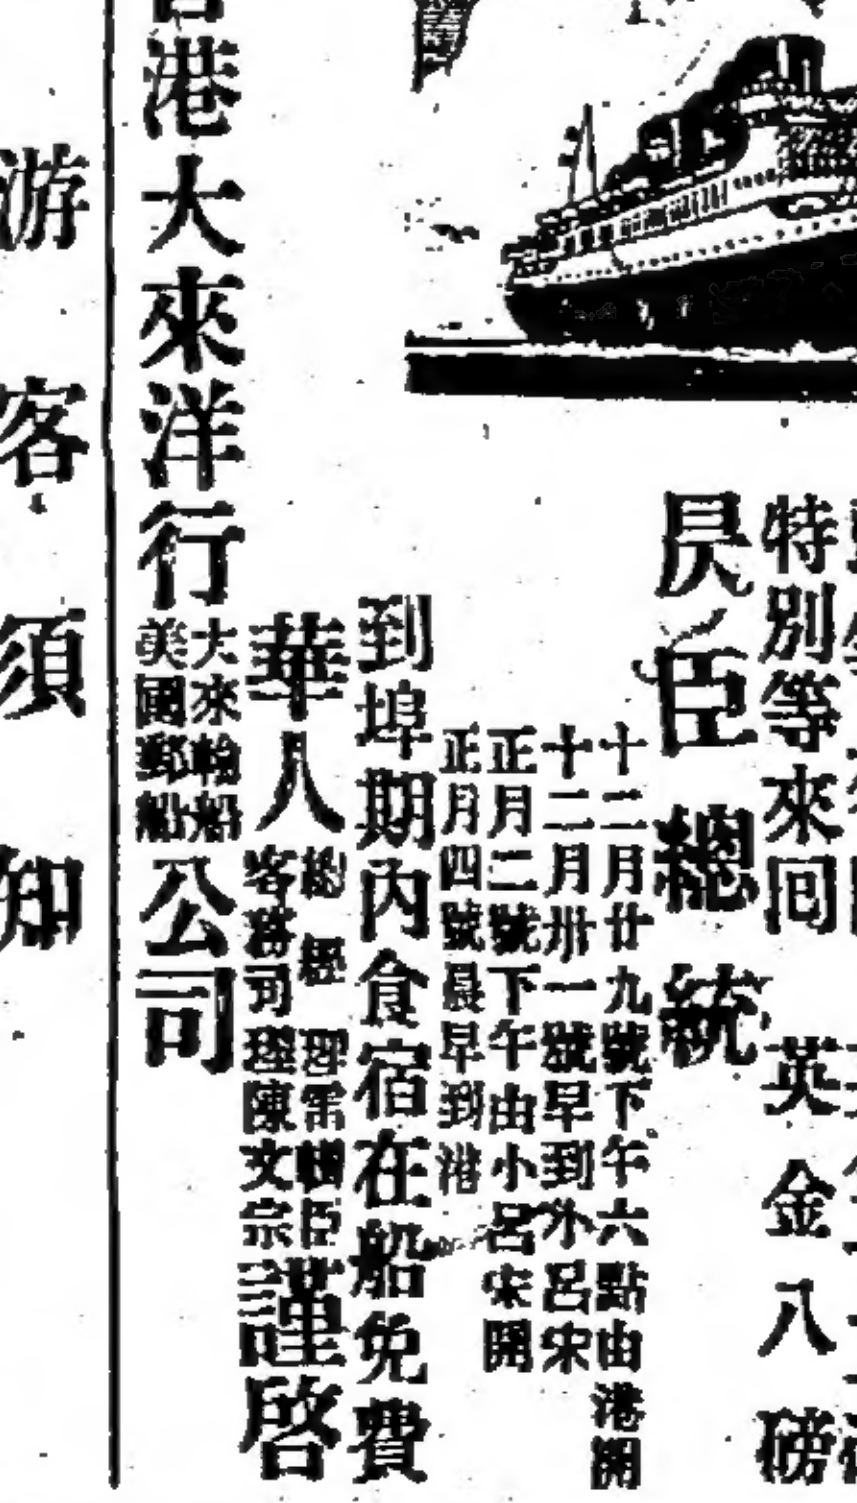 特別等來囘 英金八磅
昃臣總統
十二月廿九號下午六點由港開
十二月卅一號早到小呂宋
正月二號下午由小呂宋開
正月四號晨早到港
到埠期內食宿在船免費
華人
總經理雷
臣
客務司理陳文宗
謹啓
港大來洋行
大來輪船
美國郵船
公司
游客須知